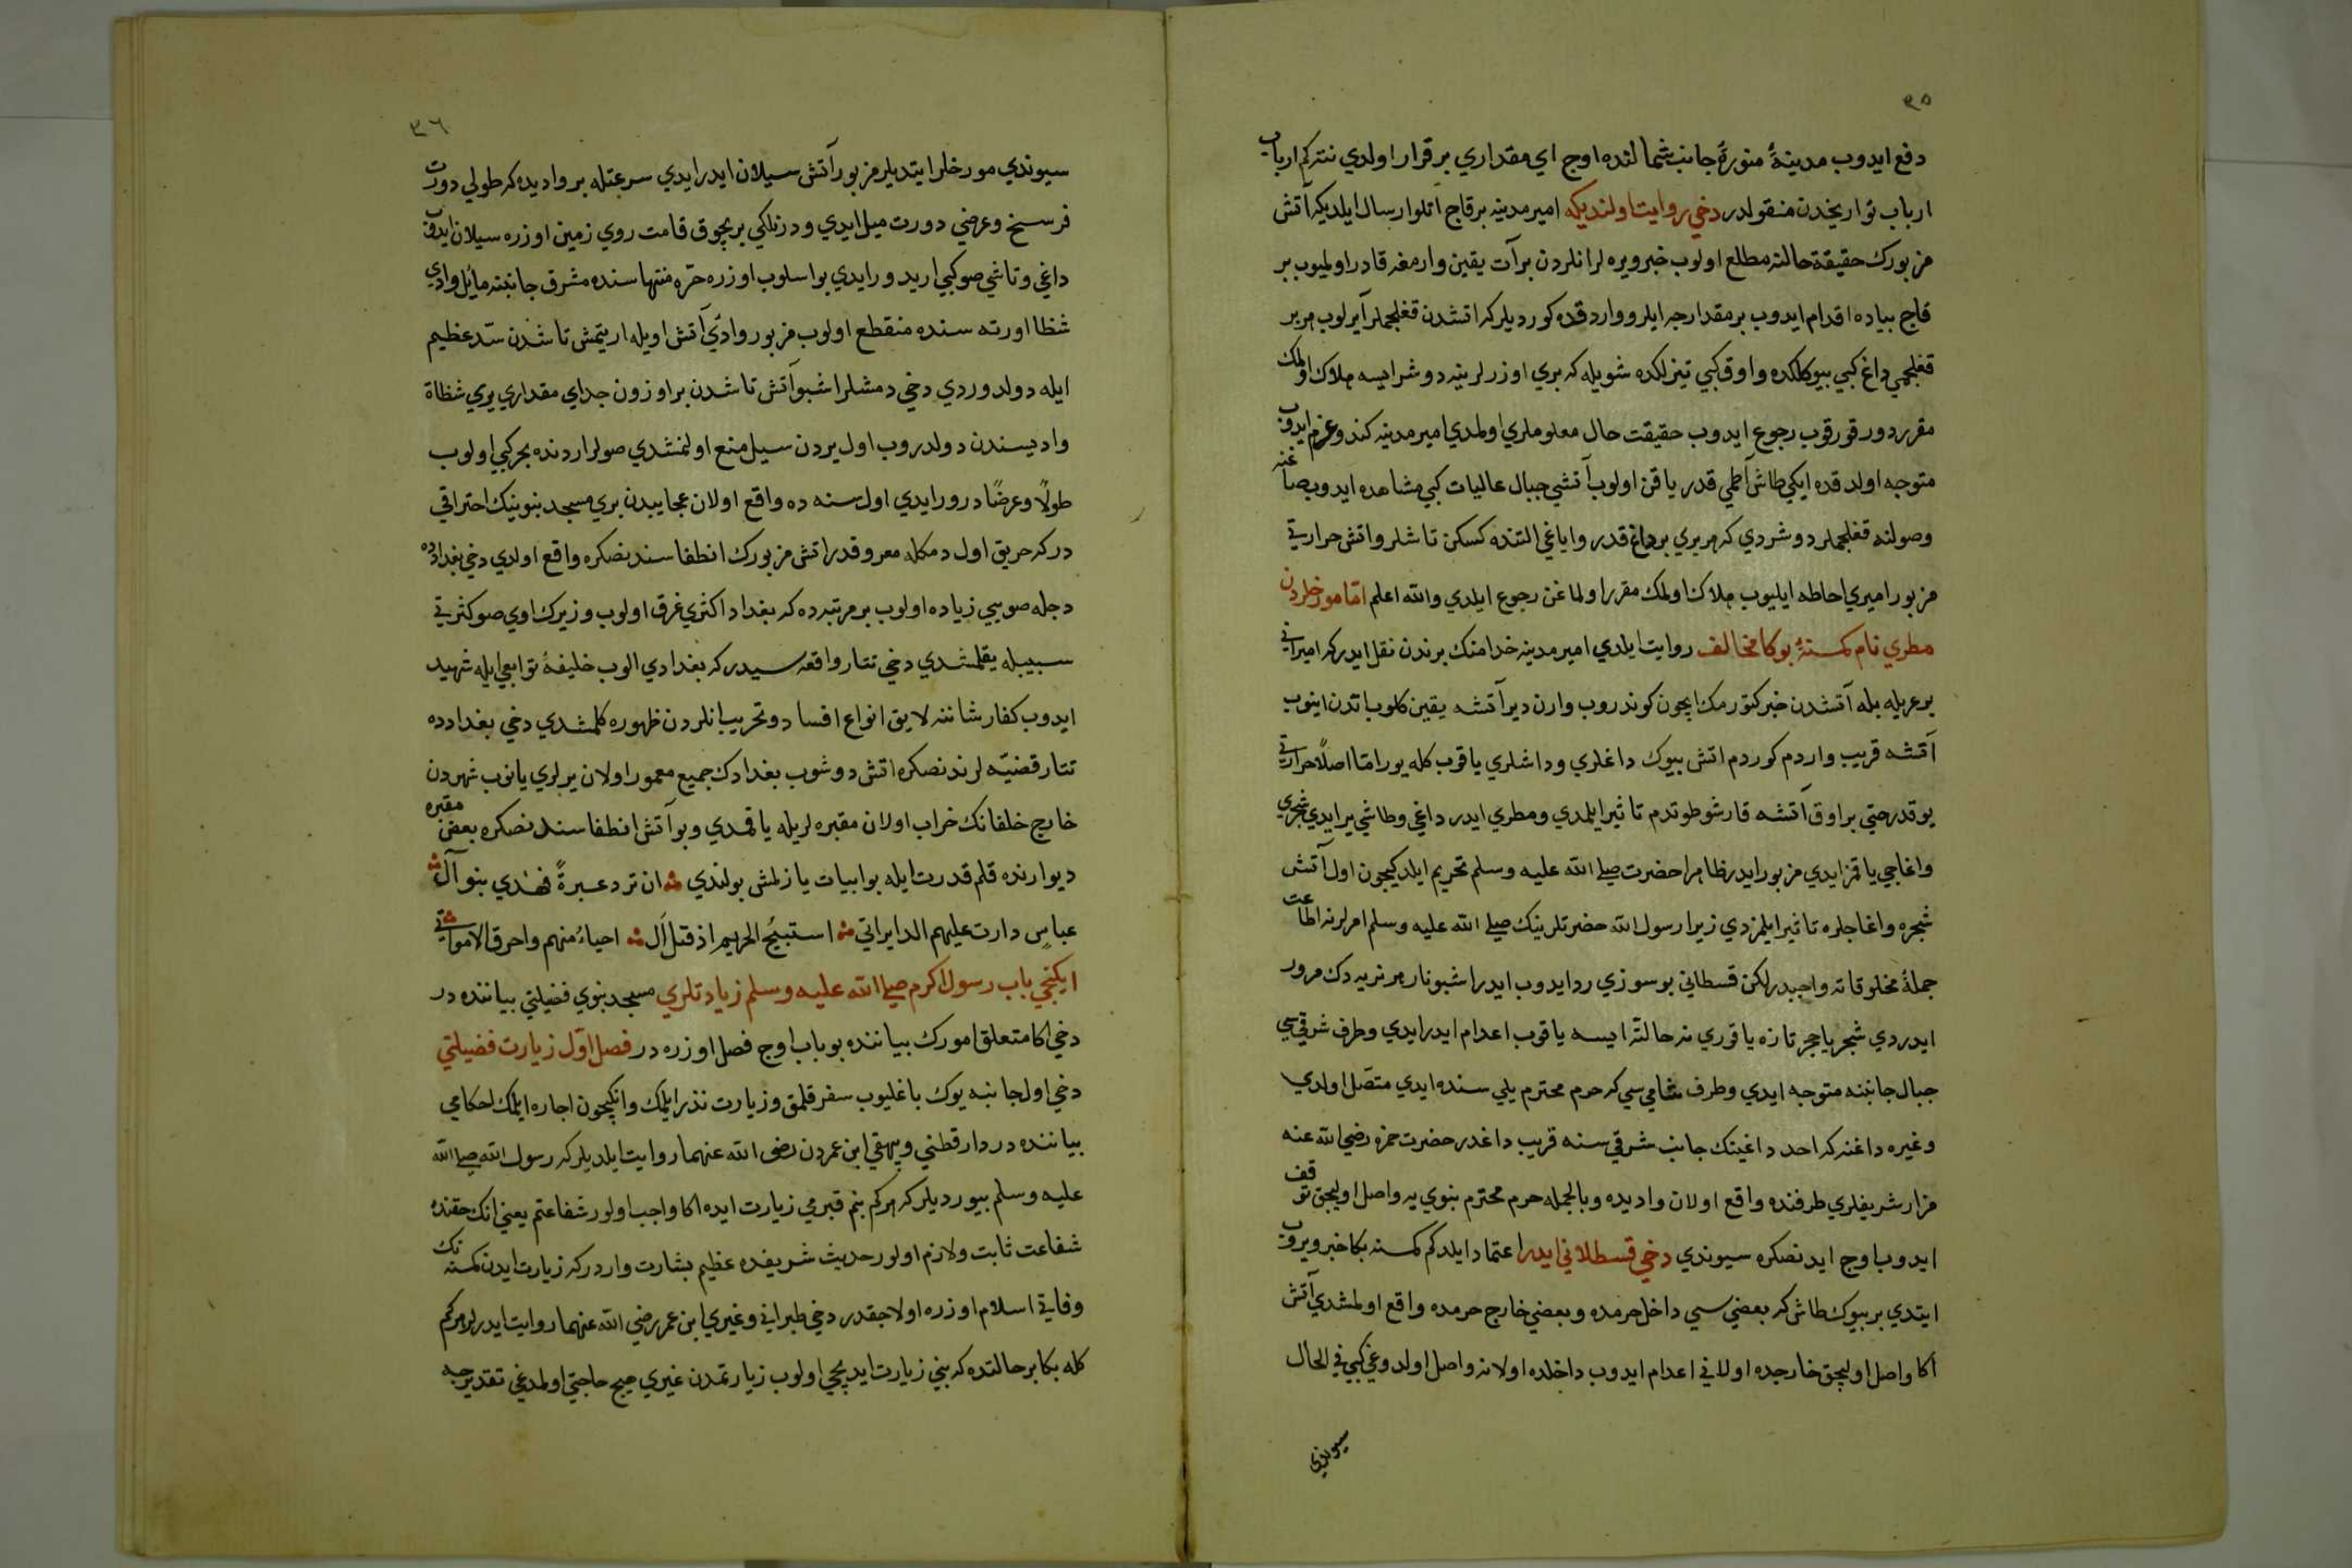 ٣٥
دفع ايدوب مدينۀ منوره جانب شمالنده اوچ اي مقداري برقرار اولدي نته كم ارباب
ارباب تواريخدن منقولدر دخي روايت اولنديكه امير مدينه برقاج اتلو ارسال ايلديكه آتش
مزبورك حقيقة حالنه مطلع اولوب خبر ويره لر انلردن برآت يقين وارمغه قادر اولميوب بر
قاج پياده اقدام ايدوب بر مقدارجه ايلرو واردقده كورديلر كه اتشدن قغلجملر آيرلوب هر بر
قغلجمي داغ كبي بيوكلكده و اوق كبي تيزلكده شويله كه بري اوزرلرينه دوشرايسه هلاك اولمك
مقرردور قورقوب رجوع ايدوب حقيقت حال معلوملري اولمدي امير مدينه كندو عزم ايدوب
متوجه اولدقده ايكي طاش آطمي قدر ياقن اولوب آتشي جبال عاليات كبي مشاهده ايدوب صاغنه
وصولنه قغلجملر دوشردي كه هر بري بر داغ قدر و اياغي التنده كسكن تاشلر و اتش حرارتي
مزبور اميري احاطه ايليوب هلاك اولمك مقرر اولماغن رجوع ايلدي والله اعلم امّا مورخلردن
مطري نام كمسنۀ بوكا مخالف روايت ايلدي امير مدينه خدامنك برندن نقل ايدر كه امير اني
بر عربله بله آتشدن خبر كتورمك ايچون كوندروب وارن دير آتشه يقين كلوب اتدن اينوب
آتشه قريب واردم كوردم اتش بيوك داغلري و داشلري ياقوب كله يور امّا اصلاً حرارتي
يوقدر حتي بر اوق آتشه قارشو طوتدم تاثير ايلمدي و مطري ايدر داغي و طاشي ير ايدي شجري
و اغاجي ياقمز ايدي مزبور ايدر ظاهرا حضرت صلي الله عليه وسلم تحريم ايلدكيچون اول آتش
شجره و اغاجلره تاثير ايلمزدي زيرا رسول الله حضرتلرينك صلي الله عليه وسلم امرلرنه اطاعت
جملۀ مخلوقاته واجبدر لكن قسطلاني بو سوزي رد ايدوب ايدر اشبو نار هر نريه دك مرور
ايدردي شجر يا حجر تازه يا قوري نه حالته ايسه ياقوب اعدام ايدر ايدي و طرف شرقي سي
جبال جانبنه متوجه ايدي و طرف شامي سي كه حرم محترم يلي سنده ايدي متصل اولدي
وغيره داغنه كه احد داغينك جانب شرقي سنه قريب داغدر حضرت حمزه رضي الله عنه
مزار شريفلري طرفنده واقع اولان واديده و بالجمله حرم محترم نبوي يه واصل اوليجق توقف
ايدوب اوچ ايدنصكره سيوندي دخي قسطلاني ايدر اعتماد ايلدكم كمسنه بكا خبر ويروب
ايتدي بر بيوك طاش كه بعضي سي داخل حرمده و بعضي خارج حرمده واقع اولمشدي آتش
اكا واصل اوليچق خارجده اولاني اعدام ايدوب داخلده اولانه واصل اولدوغي كبي في الحال
سيوندي
٣٦
سيوندي مورخلر ايتديلر مزبور آتش سيلان ايدر ايدي سرعتله بر واديده كه طولي دورت
فرسخ و عرضي دورت ميل ايدي و درنلكي بر بچوق قامت روي زمين اوزره سيلان ايدوب
داغي و تاشي صو كبي اريدور ايدي بو اسلوب اوزره حرّه منتهاسنده مشرق جانبنه مائل وادي
شظا اورته سنده منقطع اولوب مزبور وادئ آتش اويله اريتمش تاشدن سدّ عظيم
ايله دولدوردي دخي دمشلر اشبو آتش تاشدن بر اوزون جداي مقداري يري شظاة
واديسندن دولدروب اول يردن سيل منع اولنمشدي صولر اردنده بحر كبي اولوب
طولًا وعرضًا درور ايدي اول سنه ده واقع اولان عجايبدن بري مسجد نبوينيك احتراقي
در كه حريق اول دمكله معروفدر اتش مزبورك انطفاسندنصكره واقع اولدي دخي بغدادده
دجله صويي زياده اولوب بر مرتبه ده كه بغداد اكثري غرق اولوب وزيرك اوي صو كثرتي
سببيله يقلمشدي دخي تتار واقعه سيدر كه بغدادي الوب خليفۀ توابعي ايله شهيد
ايدوب كفار شاننه لايق انواع افساد و تخريب انلردن ظهوره كلمشدي دخي بغدادده
تتار قضيّه لرندنصكره اتش دوشوب بغدادك جميع معمور اولان يرلري يانوب شهردن
خارج خلفانك خراب اولان مقبره لريله ياقمدي و بو آتش انطفاسندنصكره بعض مقبره
ديوارنده قلم قدرت ايله بو ابيات يازلمش بولندي ان ترد عبرةً فهٰذي بنو آل
عباسٍ دارت عليهم الدايراتي استبيُح الحريم اذ قتل اَل احياءُ منهم واحرق الامواتي
ايكنجي باب رسول اكرم صلي الله عليه وسلم زيادتلري مسجد نبوي فضيلتي بياننده در
دخي اكا متعلق امورك بياننده بو باب اوچ فصل اوزره در فصل اوّل زيارت فضيلتي
دخي اول جانبه يوك باغليوب سفر قلمق و زيارت نذر ايلمك و انكيچون اجاره ايلمك احكامي
بياننده در دارقطني و بيهقي ابن عمردن رضى الله عنهما روايت ايلديلر كه رسول الله صلي الله
عليه وسلم بيورديلر كه هر كم بنم قبرمي زيارت ايده اكا واجب اولور شفاعتم يعني انك حقنده
شفاعت ثابت و لازم اولور حديث شريفده عظيم بشارت واردر كه زيارت ايدن كمسنه نك
وفاتي اسلام اوزره اولاجقدر دخي طبراني و غيري ابن عمر رضي الله عنهما روايت ايدرلر هر كم
كله بكا بر حالتده كه بني زيارت ايديجي اولوب زيارتمدن غيري هيچ حاجتي اولمدغي تقديرجه